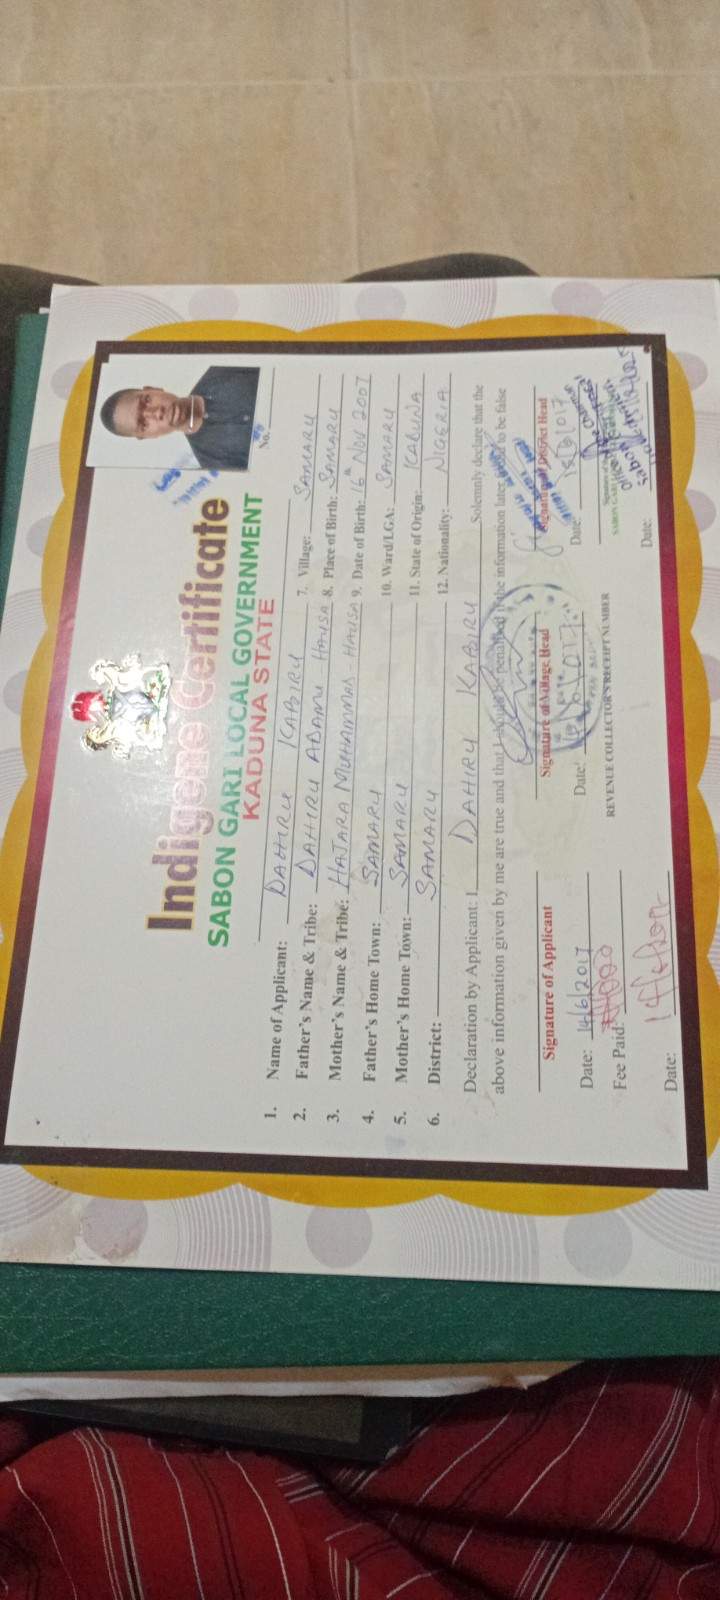 Indigene Certificate
SABON GARI LOCAL GOVERNMENT
KADUNA STATE
No.
1. Name of Applicant: DAHIRU KABIRU
2. Father's Name & Tribe: DAHIRU ADAMU HAUSA 7. Village: SAMARU
3. Mother's Name & Tribe: HAJARA MUHAMMAD HAUSA 8. Place of Birth: SAMARU
4. Father's Home Town: SAMARU 9. Date of Birth: 16th NOV 2007
5. Mother's Home Town: SAMARU 10. Ward/LGA: SAMARU
6. District: SAMARU 11. State of Origin: KADUNA
12. Nationality: NIGERIA
Declaration by Applicant: I DAHIRU KABIRU Solemnly declare that the
above information given by me are true and that I should be penalised if the information later to be false
Signature of Applicant Signature of Village Head Signature of District Head
Date: 14/6/2017 Date: Date:
Fee Paid: REVENUE COLLECTOR'S RECEIPT NUMBER SABON GARI
Date: Date: